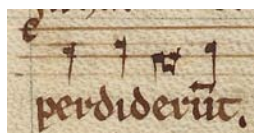 perdiderūt.